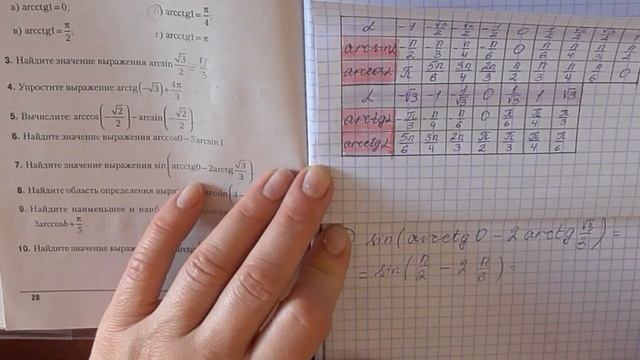 а) arcctg1=0;
б) arcctg1=π/4;
в) arcctg1=π/2;
г) arcctg1=π.
3. Найдите значение выражения arcsin √3/2 = π/3
4. Упростите выражение arctg(−√3)+4π/3
5. Вычислите: arccos(−√2/2)−arcsin(−√2/2)
6. Найдите значение выражения arccos0−5arcsin1.
7. Найдите значение выражения sin(arcctg0−2arctg √3/3)
8. Найдите область определения arcsin(4−
9. Найдите наименьшее и
3arccosb+π/5
10. Найдите значение
28
α −1 −√3/2 −√2/2 −1/2 0 1/2 √2/2 √3/2 1
arcsinα −π/2 −π/3 −π/4 −π/6 0 π/6 π/4 π/3 π/2
arccosα π 5π/6 3π/4 2π/3 π/2 π/3 π/4 π/6 0
α −√3 −1 −1/√3 0 1/√3 1 √3
arctgα −π/3 −π/4 −π/6 0 π/6 π/4 π/3
arcctgα 5π/6 3π/4 2π/3 π/2 π/3 π/4 π/6
sin(arcctg0−2arctg √3/3)=
=sin(π/2−2 π/6)=